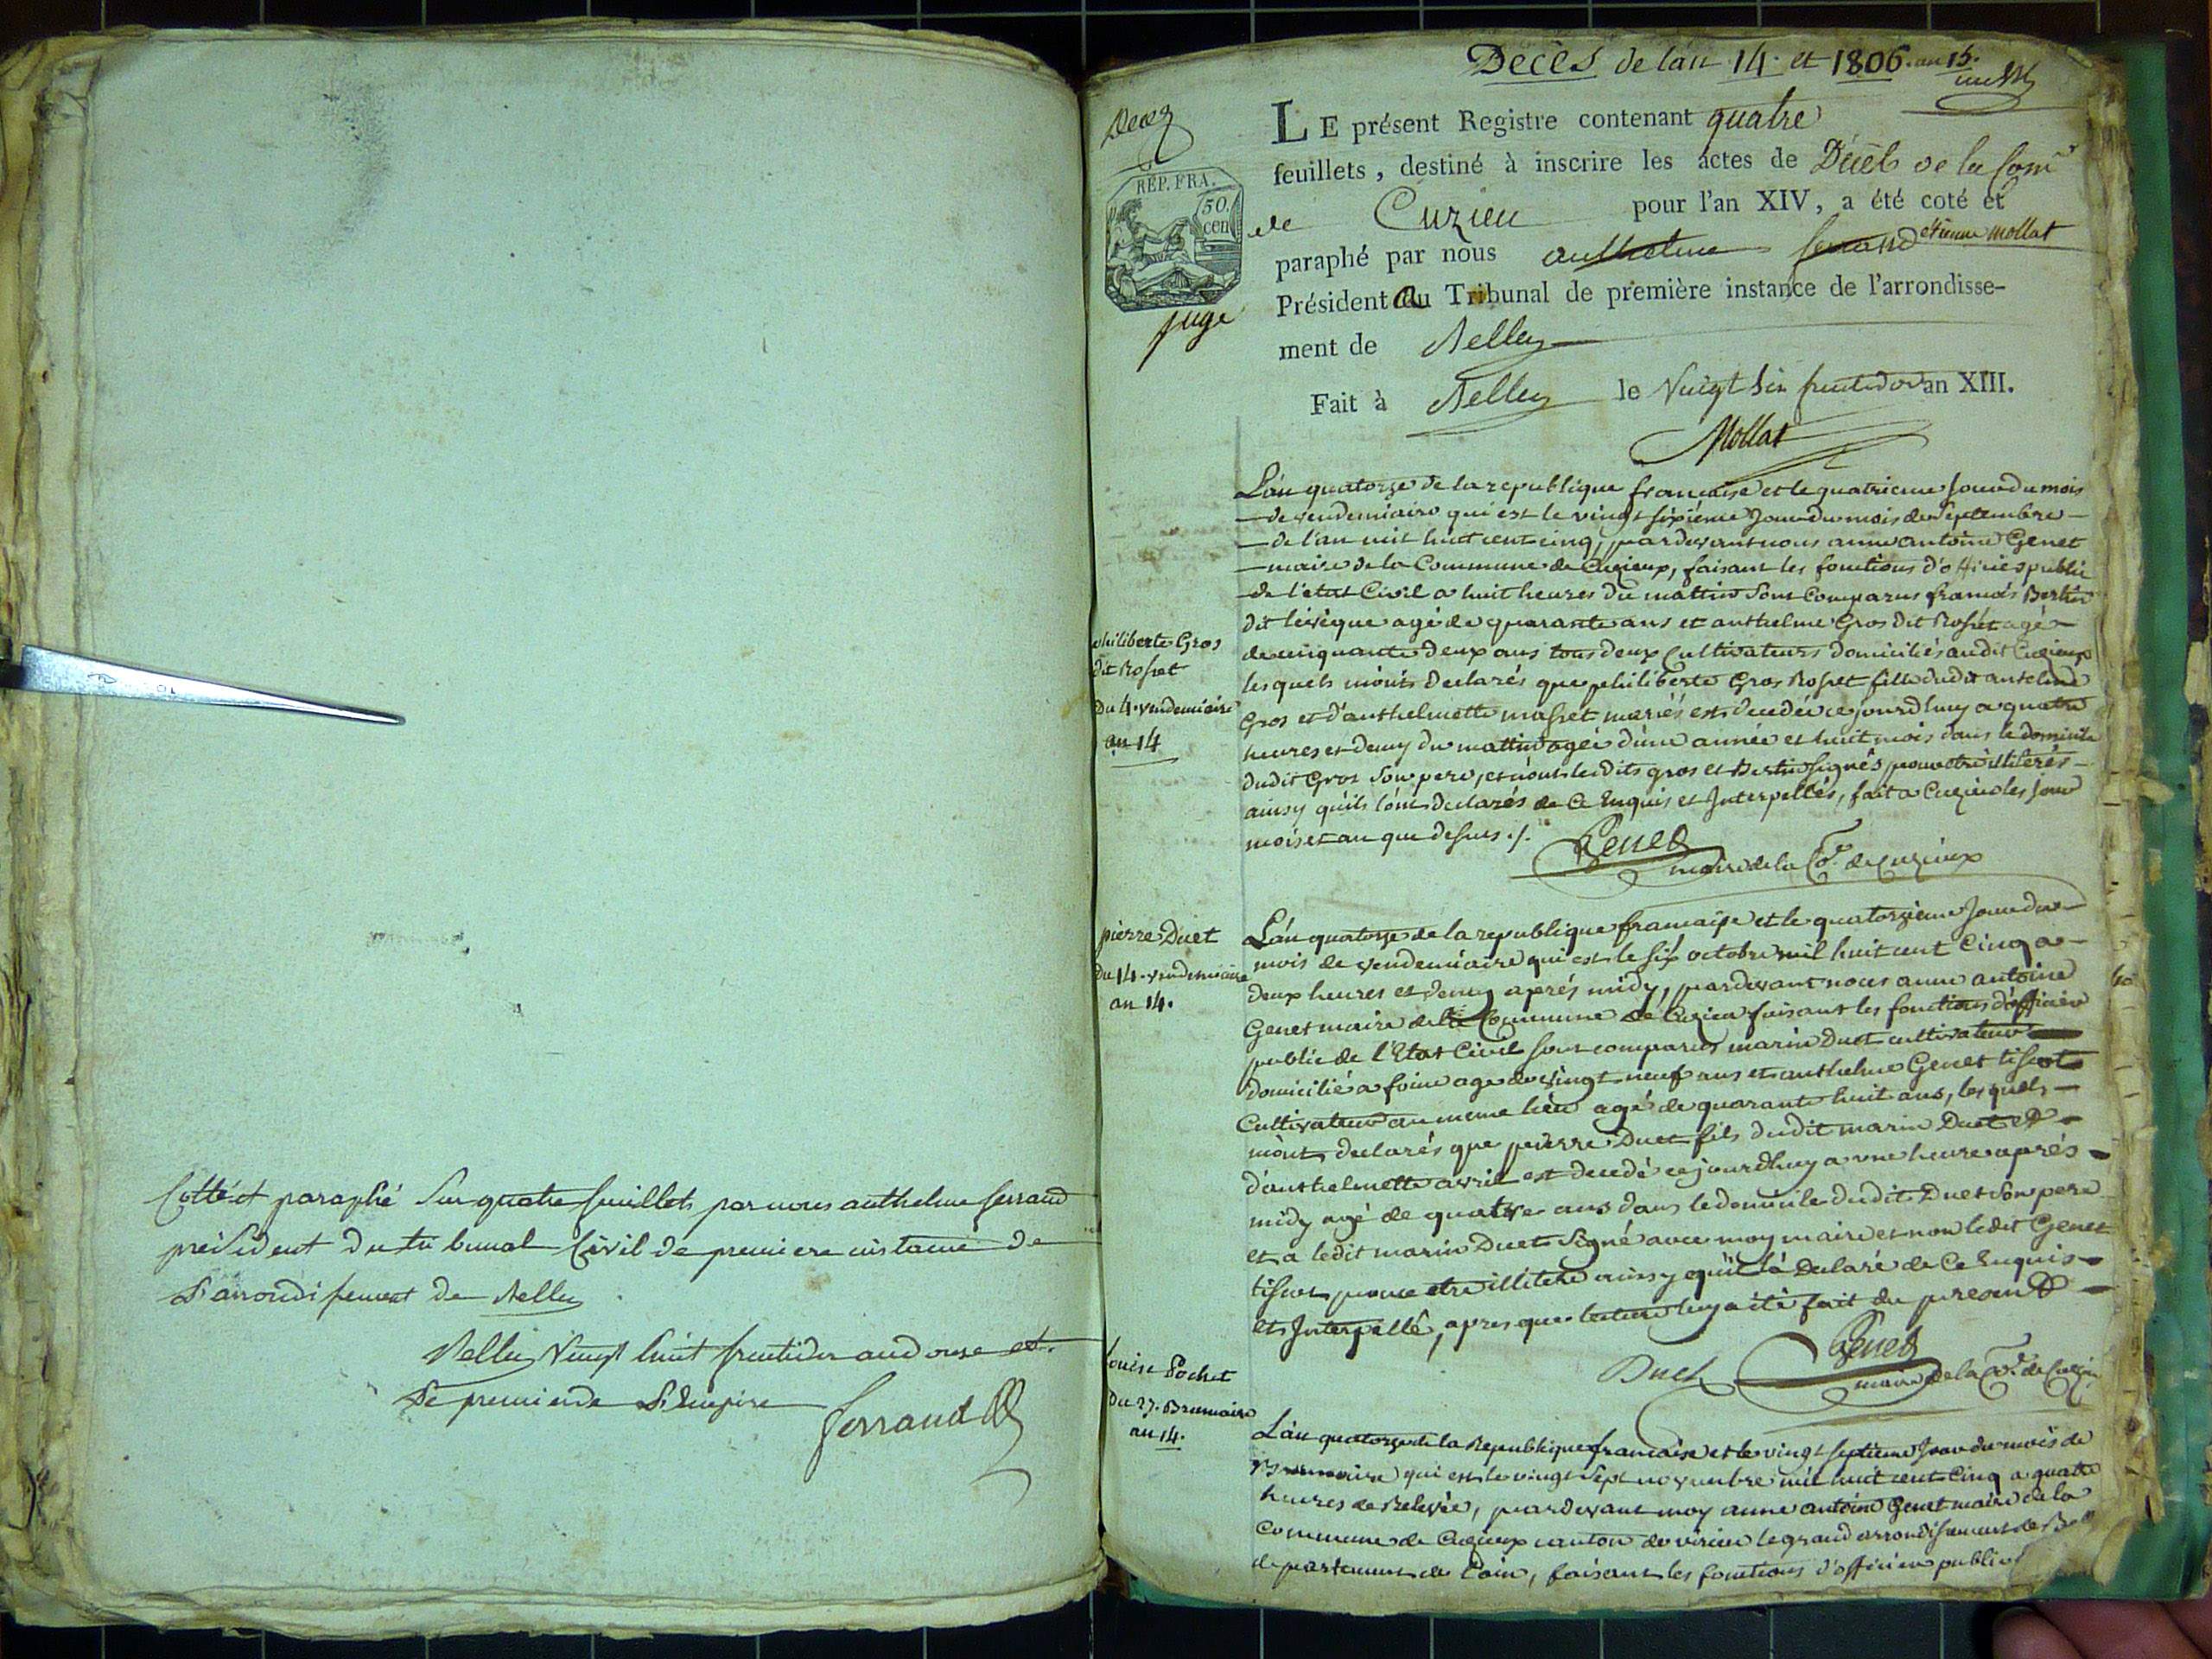 Cotté et paraphé Sur quatre feuillets par nous anthelme ferrand
président du tribunal Civil de premiere instance de
L'arrondissement de Belley
Belley Vingt huit fructidor an douze et
Le premier de L'Empire
ferrand
Décès de l'an 14. et 1806. an 15.
Decez
REP. FRA.
50.
cen
juge
LE présent Registre contenant quatre
feuillets, destiné à inscrire les actes de Décès de la Com
de Cuzieu pour l'an XIV, a été coté et
paraphé par nous anthelme ferrand etienne mollat
Président au Tribunal de première instance de l'arrondisse-
ment de Belley
Fait à Belley le Vingt Six fructidor an XIII.
Mollat
philiberte Gros
dit Rosset
du 4. vendemiaire
an 14
L'an quatorze de la republique francaise et le quatrieme Jour du mois
de vendemiaire qui est le vingt sixieme Jour du mois de Septembre
de l'an mil huit cent cinq, pardevant nous anne antoine Genet
maire de la Commune de Cuzieux, faisant les fonctions d'officier public
de l'etat Civil a huit heures du mattin Sont Comparus francois Bertin
dit levêque agé de quarante ans et anthelme Gros dit Rosset agé
de cinquante deux ans tous deux Cultivateurs domiciliés audit Cuzieux
lesquels m'ont declarés que philiberte Gros Rosset fille dudit antelme
Gros et d'anthelmette masset mariés est decedée ce jourdhuy a quatre
heures et demy du mattin agée d'une année et huit mois dans le domicile
dudit Gros Son pere, et n'ont lesdits gros et Bertin signés pour etre illiterés
ainsy qu'ils l'ont declarés de Ce Enquis et Interpellés, fait a Cuzieu les jour
mois et an que dessus ./.
Genet
maire de la Co.e de Cuzieux
pierre Duet
du 14. vendemiaire
an 14.
L'an quatorze de la republique francaise et le quatorzieme Jour du
mois de vendemiaire qui est le six octobre mil huit cent Cinq a
deux heures et demy aprés midy, pardevant nous anne antoine
Genet maire de la Commune de Cuzieu faisant les fonctions d'officier
public de l'Etat Civil sont comparus marin Duet cultivateur
domicilié a foin age de vingt neuf ans et anthelme Genet tissot
Cultivateur au meme lieu agé de quarante huit ans, les quels
m'ont declarés que pierre Duet fils dudit marin Duet et
d'anthelmette avril est decedé ce jourdhuy a une heure aprés
midy agé de quatre ans dans le domicile dudit Duet Son pere
et a ledit marin Duet Signé avec moy maire et non ledit Genet
tissot pour etre illiteré ainsy qu'il la Declaré de Ce Enquis
et Interpellé, apres que lecture luy a été fait du present
Duet
Genet
maire de la Co.e de Cuzieu
Louise Pochet
du 27. Brumaire
an 14.
L'an quatorze de la Republique francaise et le vingt septieme Jour du mois de
Brumaire qui est le vingt Sept novembre mil huit cent Cinq a quatre
heures de Relevée, pardevant moy anne antoine Genet maire de la
Commune de Cuzieux canton de virieu le grand arrondissement de Bell
departement de l'ain, faisant les fonctions d'officier public